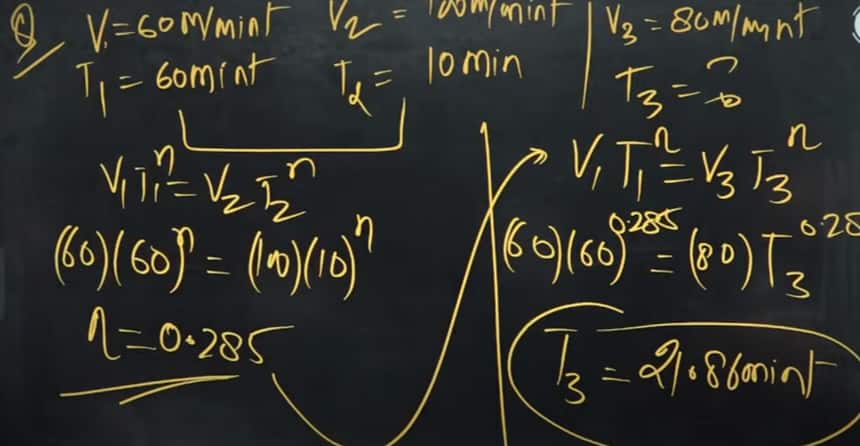 Q V₁=60m/mint V₂ = 100m/mint V₃ = 80m/mint
T₁ = 60mint T₂ = 10min T₃ = ?
V₁T₁ⁿ = V₂T₂ⁿ
(60)(60)ⁿ = (100)(10)ⁿ
n = 0.285
V₁T₁ⁿ = V₃T₃ⁿ
(60)(60)^0.285 = (80)T₃^0.28
T₃ = 21.86mint